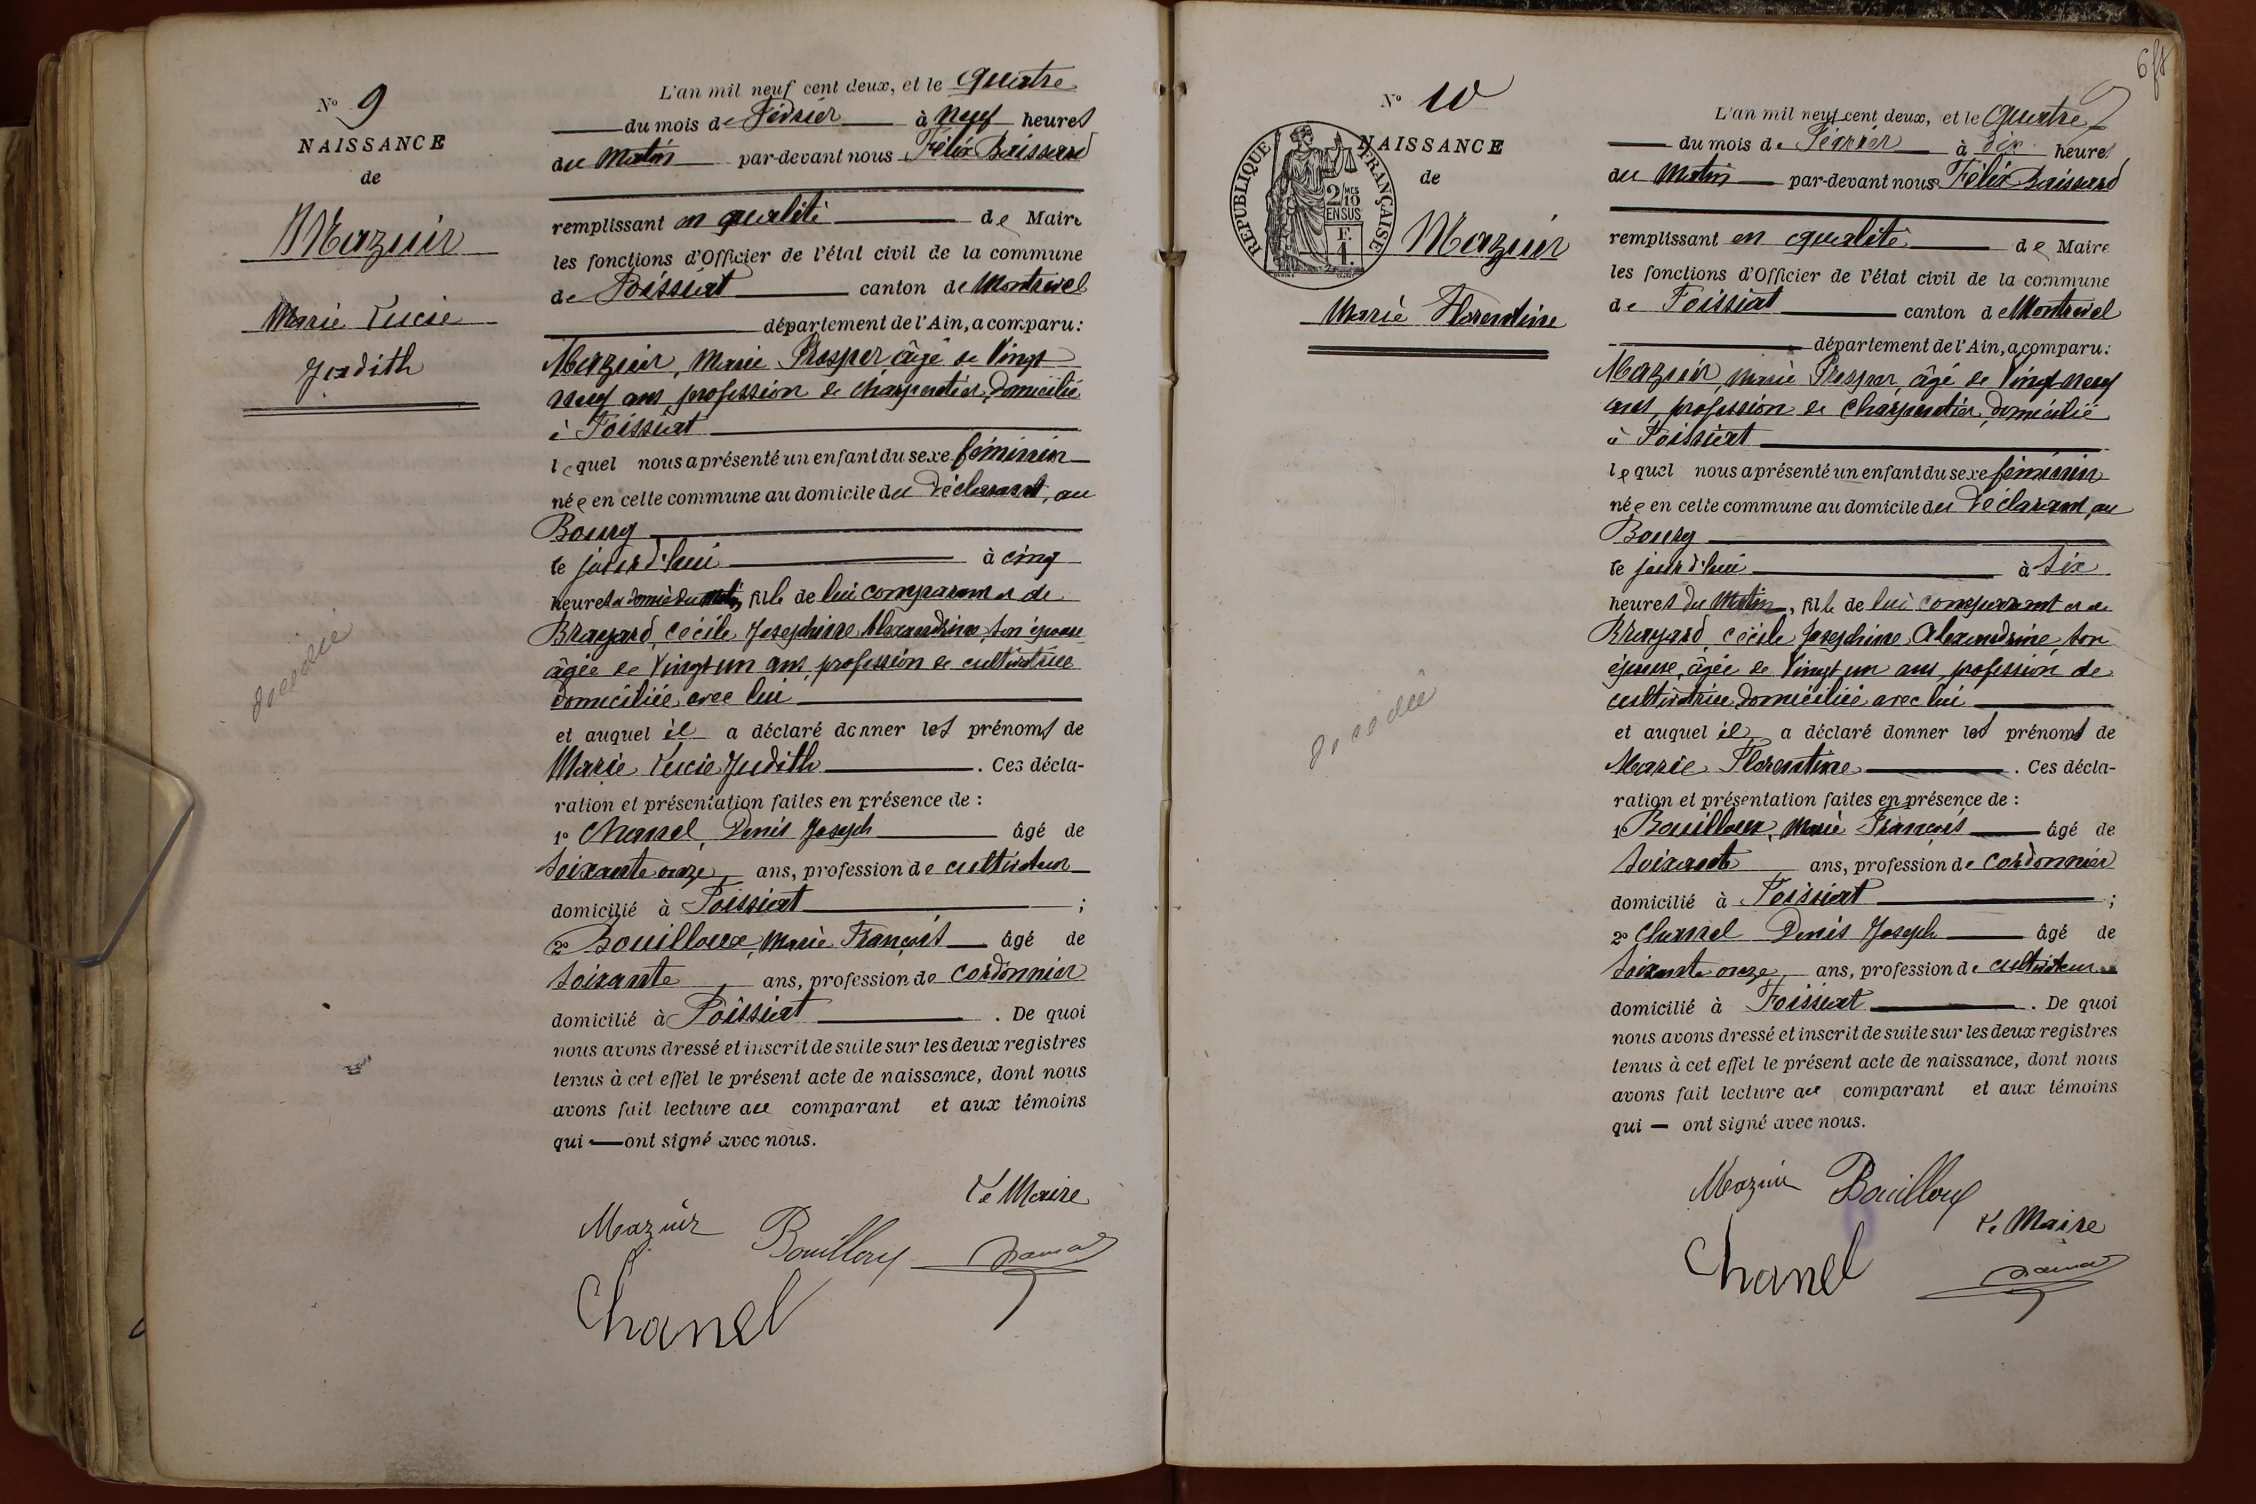 N° 9
NAISSANCE
de
Mazuir
Marie Lucie
Judith
décédée
L'an mil neuf cent deux, et le quatre
du mois de Février à neuf heures
du Matin par-devant nous Félix Baissard
remplissant en qualité de Maire
les fonctions d'Officier de l'état civil de la commune
de Foissiat canton de Montrevel
département de l'Ain, a comparu:
Mazuir, Marie Prosper âgé de Vingt
neuf ans, profession de charpentier, domicilié
à Foissiat
lequel nous a présenté un enfant du sexe féminin
née en cette commune au domicile du Déclarant, au
Bourg
le jourd'hui à cinq
heures et demie du matin, fille de lui comparant et de
Brayard, Cécile Joséphine Alexandrine, son épouse
âgée de Vingt un ans, profession de cultivatrice
domiciliée avec lui
et auquel il a déclaré donner les prénoms de
Marie Lucie Judith. Ces décla-
ration et présentation faites en présence de :
1° Chanel, Denis Joseph âgé de
soixante onze ans, profession de cultivateur
domicilié à Foissiat ;
2° Bouilloux, Marie François âgé de
soixante ans, profession de cordonnier
domicilié à Foissiat. De quoi
nous avons dressé et inscrit de suite sur les deux registres
tenus à cet effet le présent acte de naissance, dont nous
avons fait lecture au comparant et aux témoins
qui ont signé avec nous.
Le Maire
Mazuir Bouilloux
Chanel
6
N° 10
NAISSANCE
de
RÉPUBLIQUE FRANÇAISE
2/10 MES
EN SUS
F.
1.
Mazuir
Marie Florentine
décédée
L'an mil neuf cent deux, et le quatre
du mois de Février à dix heures
du Matin par-devant nous Félix Baissard
remplissant en qualité de Maire
les fonctions d'Officier de l'état civil de la commune
de Foissiat canton de Montrevel
département de l'Ain, a comparu:
Mazuir, Marie Prosper, âgé de Vingt neuf
ans, profession de charpentier, domicilié
à Foissiat
lequel nous a présenté un enfant du sexe féminin
née en cette commune au domicile du Déclarant, au
Bourg
le jourd'hui à six
heures du Matin, fille de lui comparant et de
Brayard, Cécile Joséphine Alexandrine son
épouse, âgée de Vingt un ans, profession de
cultivatrice domiciliée avec lui
et auquel il a déclaré donner les prénoms de
Marie Florentine. Ces décla-
ration et présentation faites en présence de :
1° Bouilloux, Marie François âgé de
soixante ans, profession de cordonnier
domicilié à Foissiat ;
2° Chanel Denis Joseph âgé de
soixante onze ans, profession de cultivateur
domicilié à Foissiat. De quoi
nous avons dressé et inscrit de suite sur les deux registres
tenus à cet effet le présent acte de naissance, dont nous
avons fait lecture au comparant et aux témoins
qui ont signé avec nous.
Mazuir Bouilloux
Le Maire
Chanel